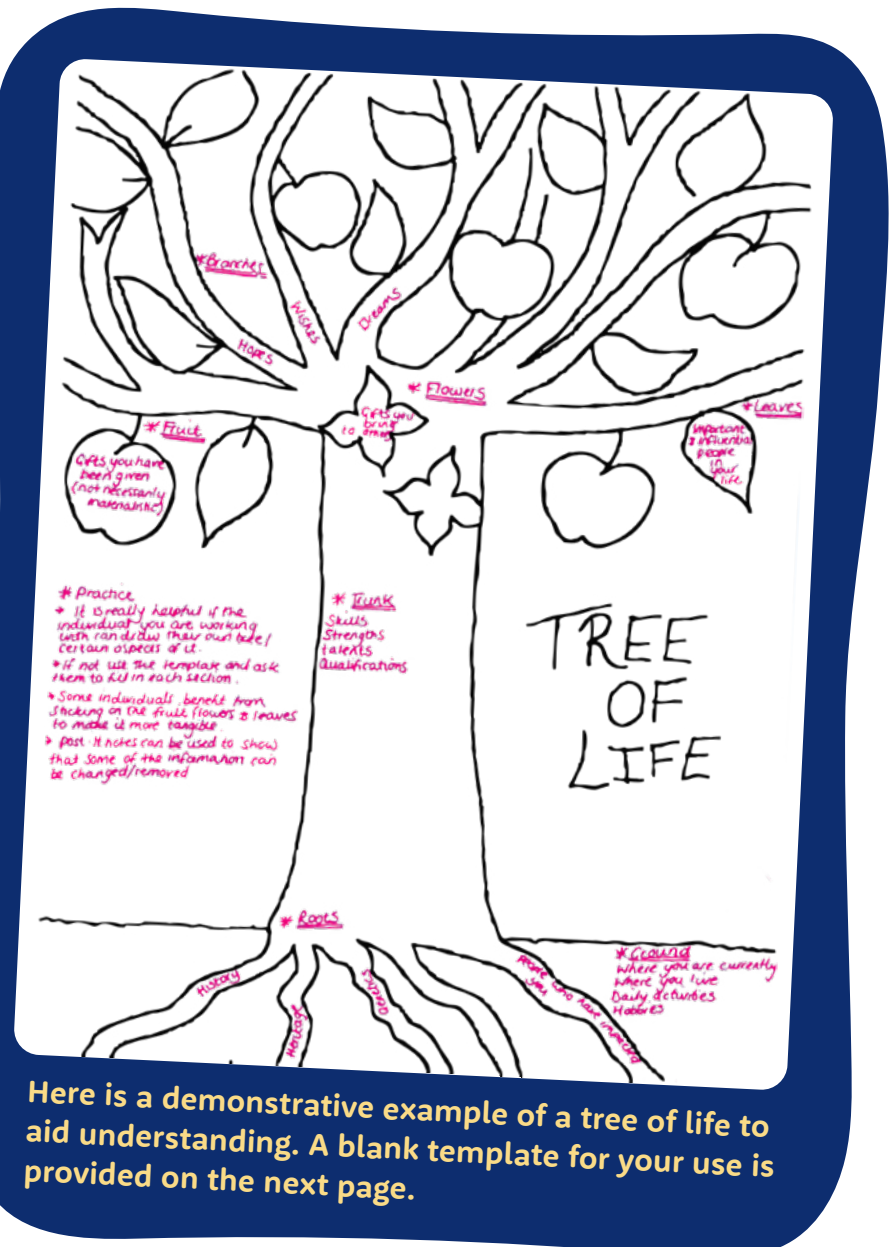 *Branches
Wishes
Dreams
Hopes
* Flowers
Gifts you
bring
to others
*Leaves
Important
& influential
people
in
your
life
* Fruit
Gifts you have
been given
(not necessarily
materialistic)
* Practice
→ It is really helpful if the
individual you are working
with can draw their own tree/
certain aspects of it.
→ If not use the template and ask
them to fill in each section.
→ Some individuals benefit from
sticking on the fruit, flowers & leaves
to make it more tangible.
→ post it notes can be used to show
that some of the information can
be changed/removed
* Trunk
Skills
Strengths
talents
Qualifications
TREE
OF
LIFE
* Roots
History
Heritage
Genetics
People who have impacted
you
*Ground
Where you are currently
Where you live
Daily activities
Hobbies
Here is a demonstrative example of a tree of life to
aid understanding. A blank template for your use is
provided on the next page.